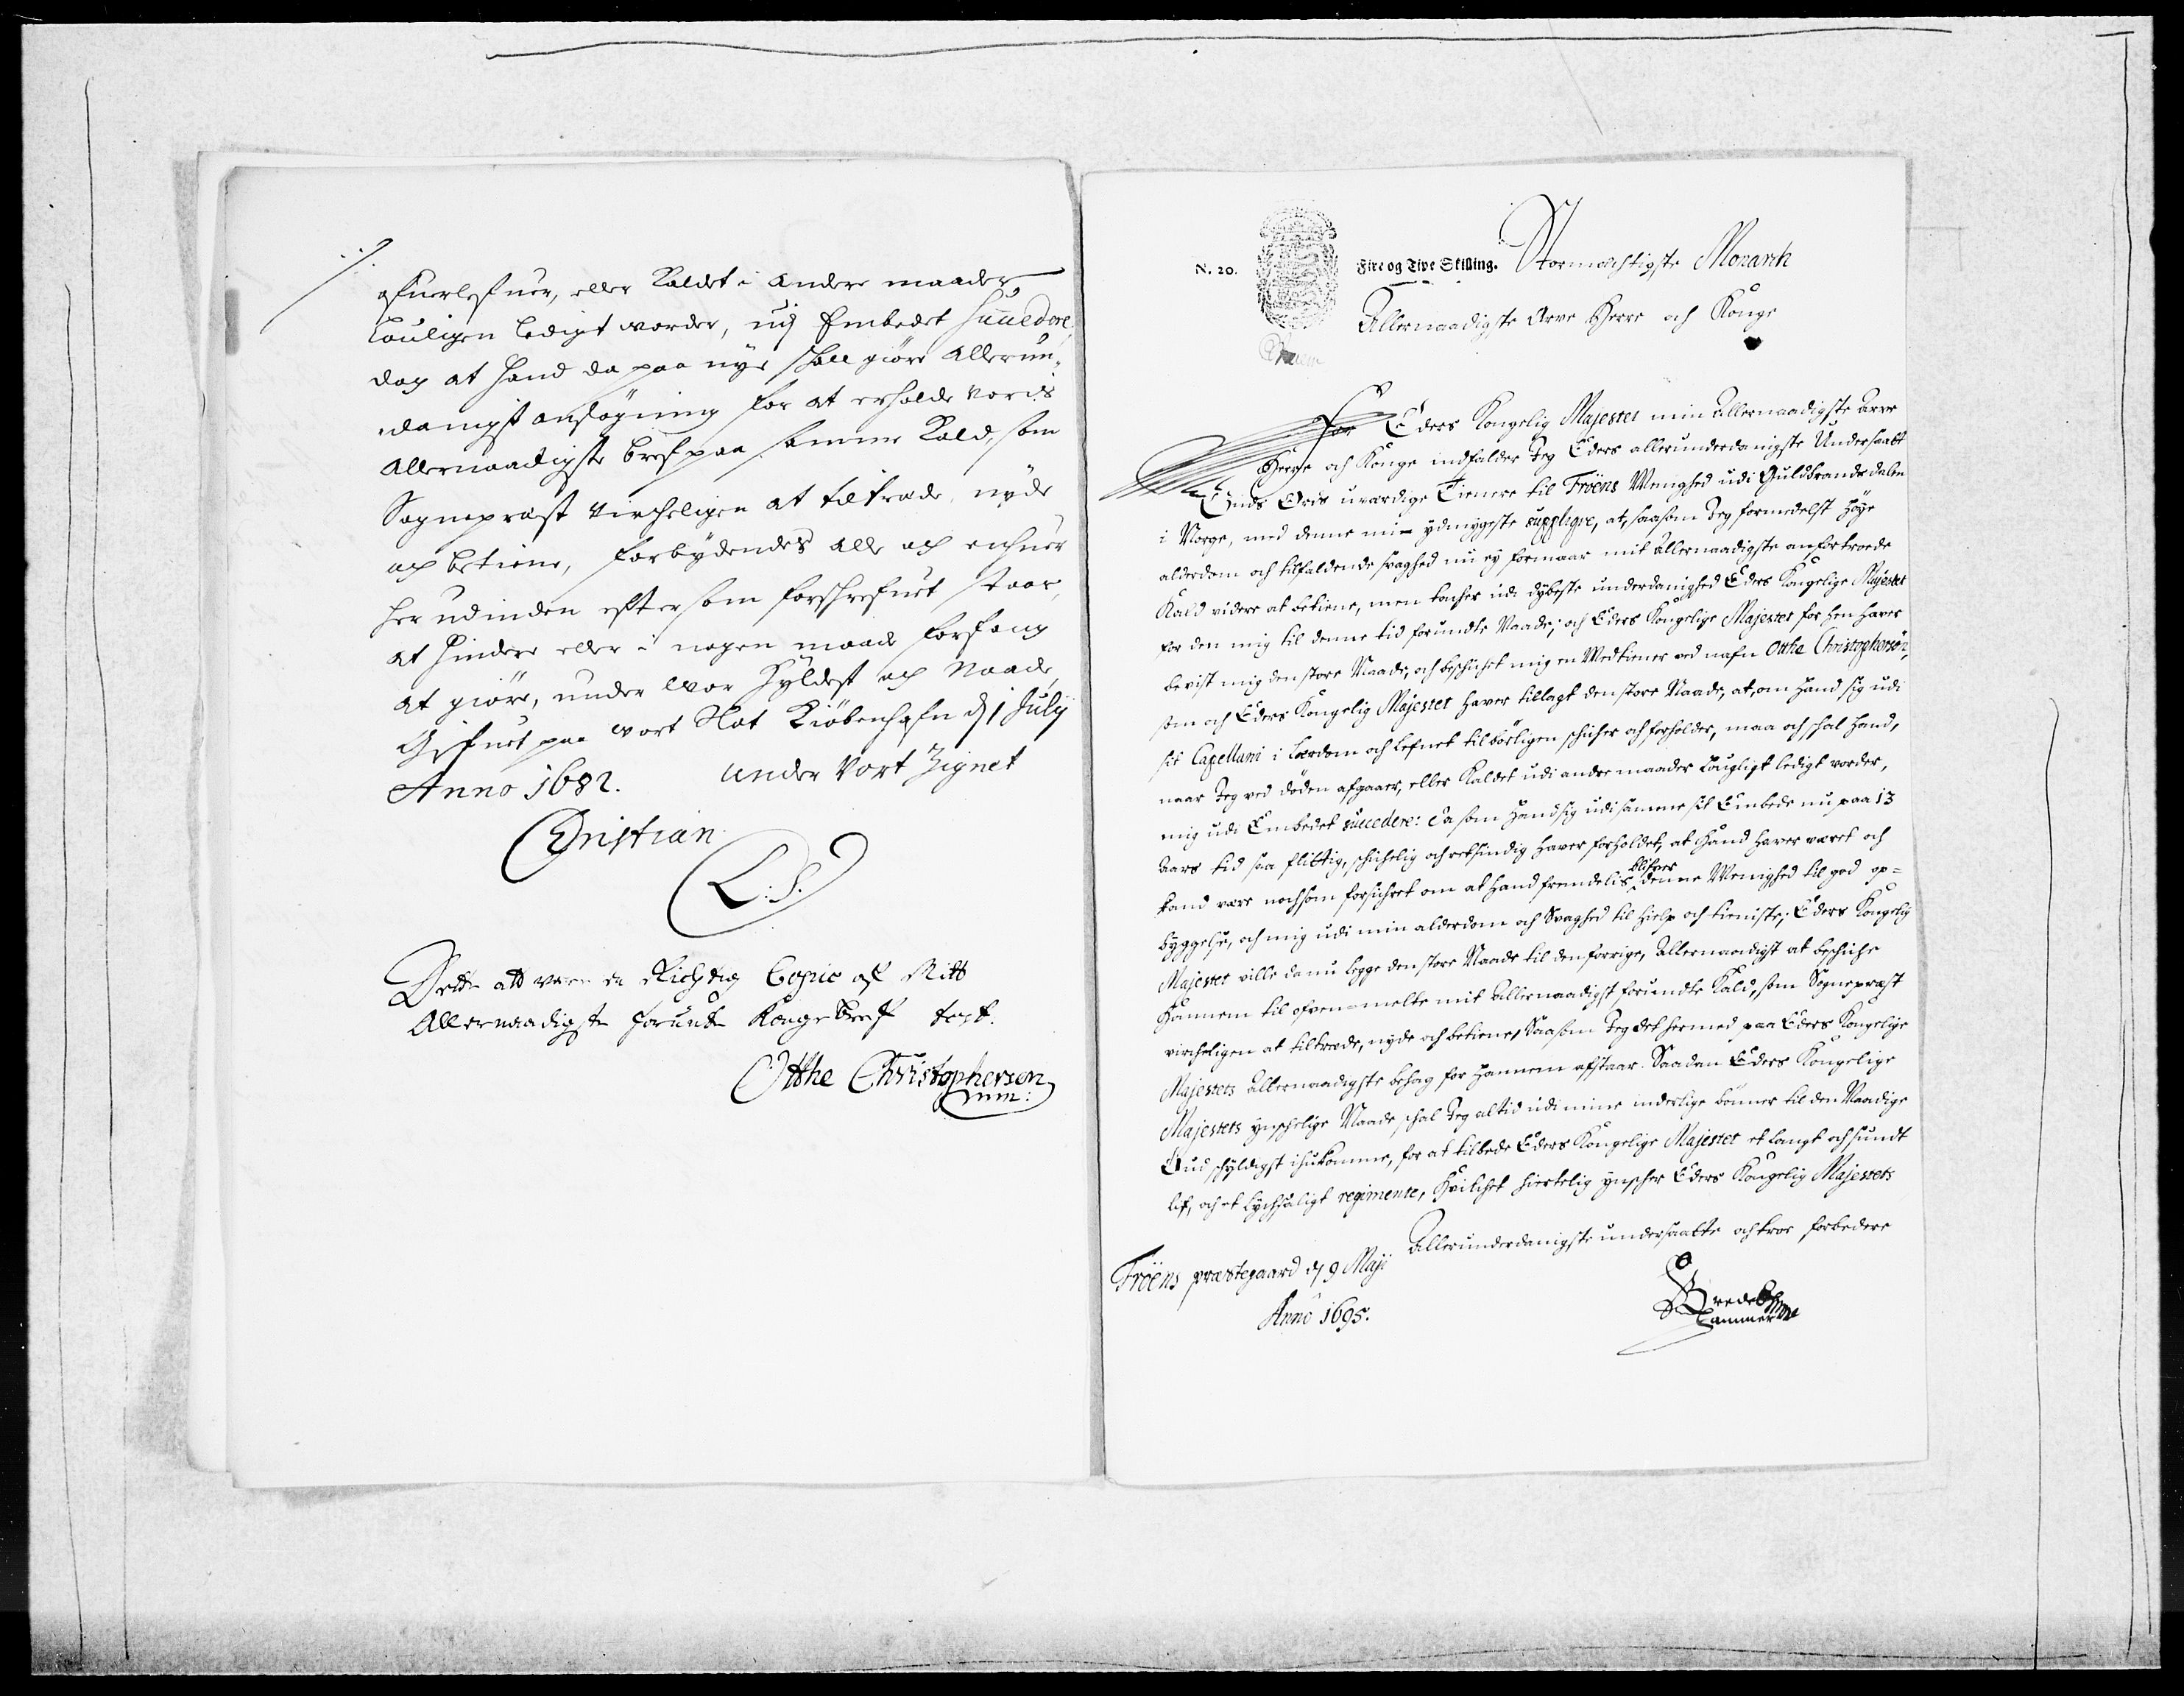 ./.
ofuerlefuer, eller Kaldet i andre maader
louligen ledigt vorder, udj Embedet succedere
dog at hand da paa nye skall giøre allerun¬
danigst ansøgning for at erholde voris
allernaadigste bref paa samme Kald, som
Sognepræst vircheligen at tiltræde, nyde
och betiene, forbydendes alle och enhuer
her udinden eftersom forschrefuet staar,
at hindre eller i nogen maade forfang
at giøre, under vor Hyldest och Naade,
Gifuet paa vort Slot Kiöbenhafn dj 1 Julij
Anno 1682. under Vort Zignet
Christian
L: S.
Dette att være en Richtig Copie af Mitt
Allernaadigste forundte Konge Breff test.
Otthe Christophersen
mm:
N. 20. Fire og Tive Skilling. Stormæchtigste Monarch
Allernaadigste Arve Herre och Konge
For Eders Kongelig Majestet min Allernaadigste Arve
Herre och Konge indfalder Jeg Eders allerunderdanigste Undersaatt
Guds Ords uværdige Tienere til Fröens Menighed udi Guldbrandsdalen
i Norge, med denne min ydmygeste supplique, at, saasom Jeg formedelst høye
alderdom och tilfaldende svaghed nu ey formaar mit Allernaadigste anfortroede
Kald videre at betiene, men tacher udi dybeste underdanighed Eders Kongelige Majestet
for den mig til denne tid forundte Naade; och Eders Kongelige Majestet for hen haver
bevist mig den store Naade, och beschichet mig en Medtiener ved nafn Otthe Christophersön,
som och Eders Kongelig Majestet haver tillagt den store Naade, at, om hand sig udi
sit Capellani i Lærdom och Lefnet tilbörligen schicher och forholder, maa och schal hand,
naar Jeg ved döden afgaaer, eller Kaldet udi andre maader lougligt ledigt vorder,
mig udi Embedet succedere: Da som hand sig udi samme sit Embede nu paa 13
Aars tid saa flittig, schichelig och retsindig haver forholdet, at hand haver været och
kand være nochsom forsichret om at hand fremdelis blifver denne Menighed til god op=
byggelse, och mig udi min alderdom och Svaghed til hielp och tieniste; Eders Kongelig
Majestet ville da nu legge den store Naade til den forrige, Allernaadigst at beschiche
Hannem til ofvenmelte mit Allernaadigst forundte Kald, som Sognepræst
vircheligen at tiltræde, nyde och betiene, Saasom Jeg det hermed paa Eders Kongelige
Majestets Allernaadigste behag for hannem afstaar. Saadan Eders Kongelige
Majestets ynschelige Naade schal Jeg altid udi mine inderlige bönner til den Naadige
Gud schyldigst ihukomme, for at tilbede Eders Kongelige Majestet et langt och sundt
lif, och et lychsaligt regimente, hvilchet hiertelig ynscher Eders Kongelig Majestets
Allerunderdanigste undersaatte och troe forbedere
Fröens præstegaard dj 9 Maji
Anno 1695.